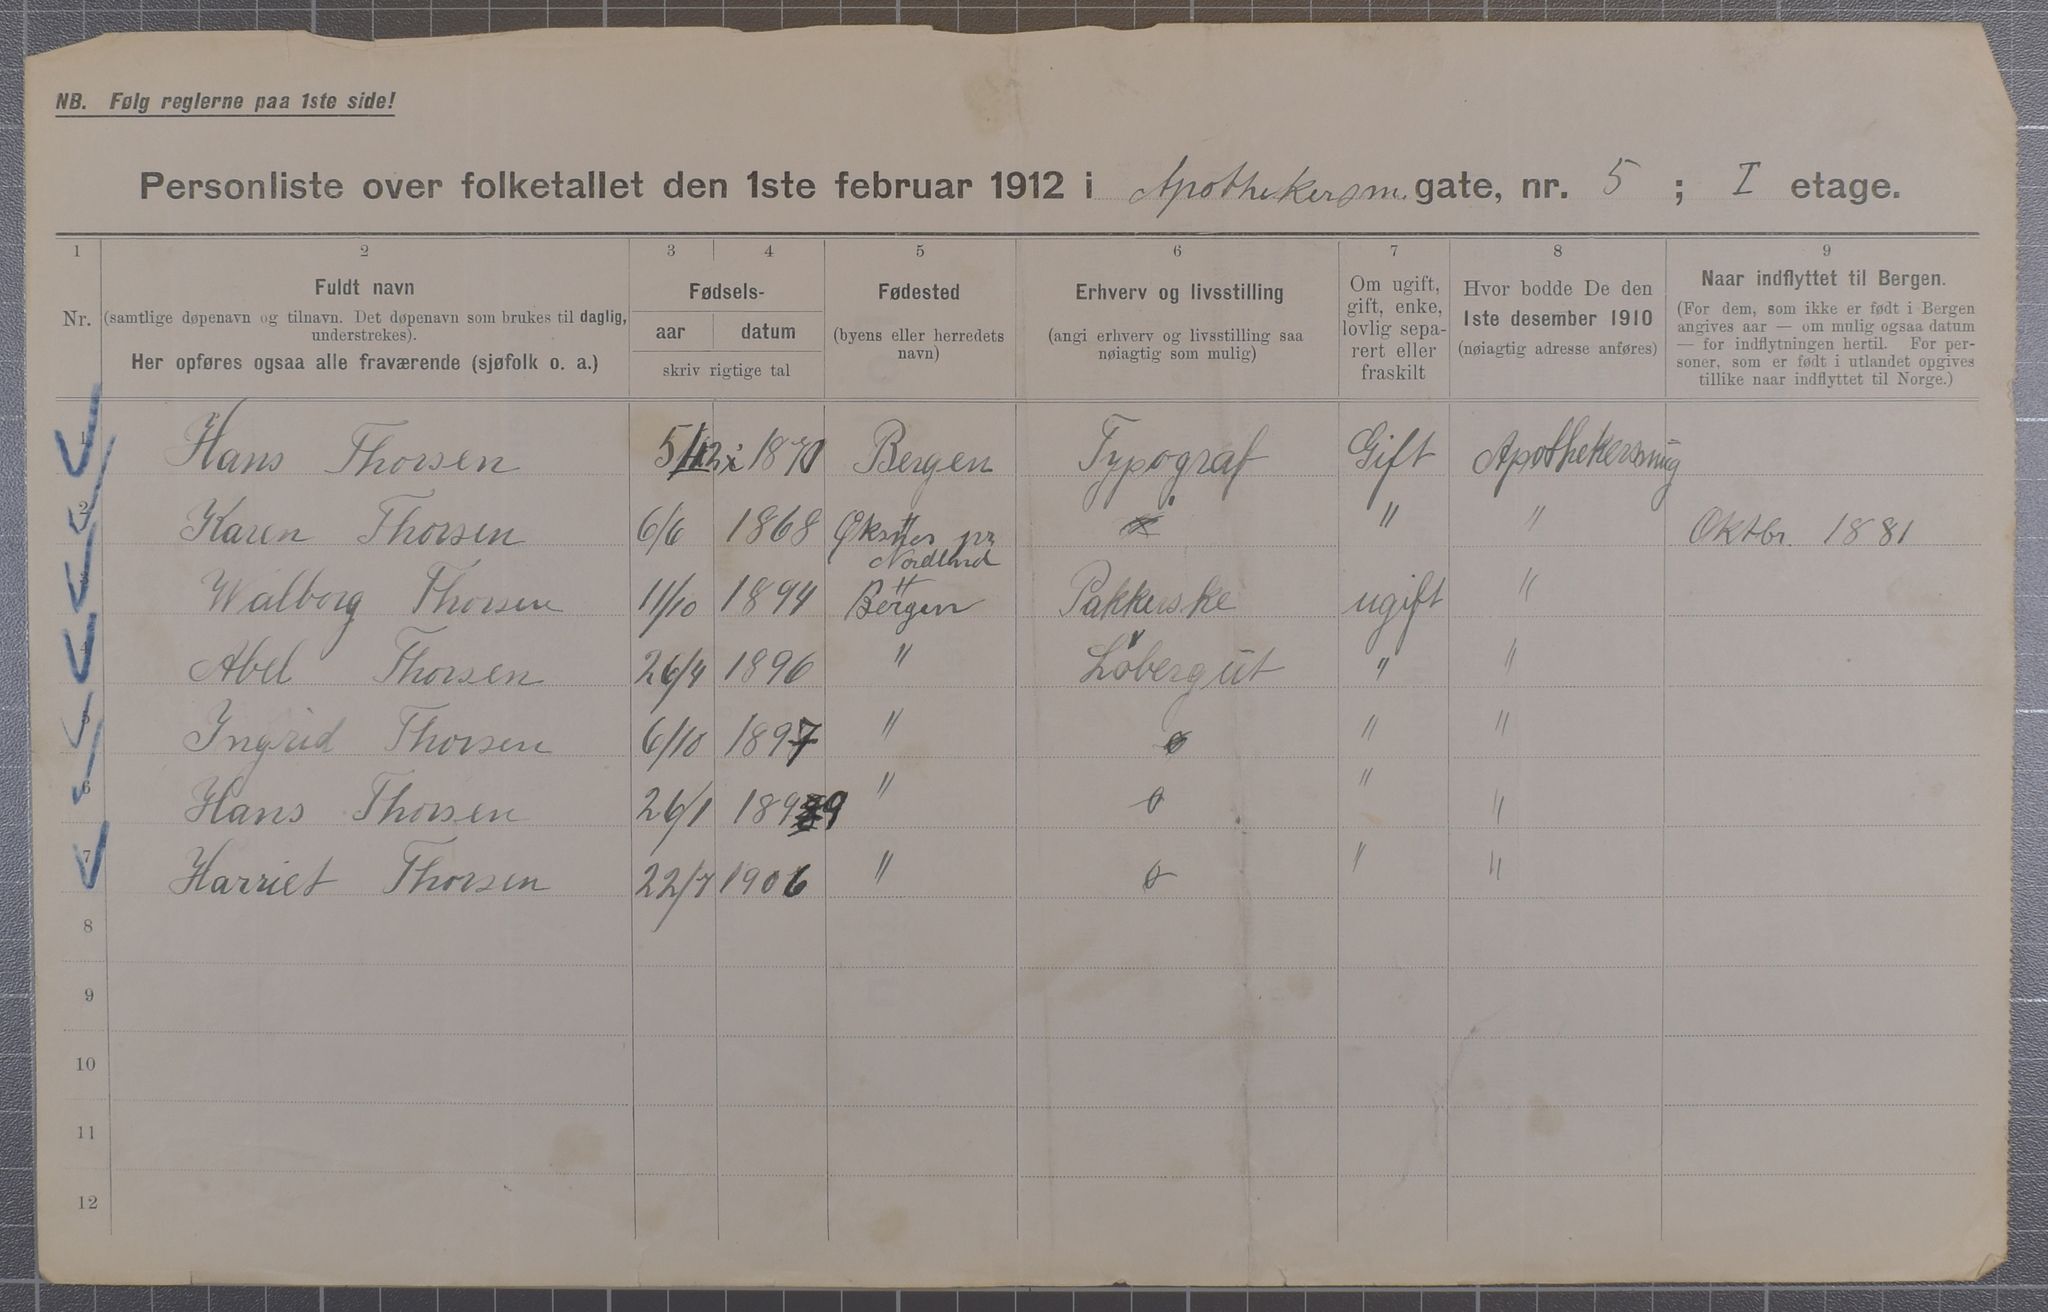 NB. Følg reglerne paa 1ste side!
Personliste over folketallet den 1ste februar 1912 i Apothekersm. gate, nr. 5 ; I etage.
1 2 3 4 5 6 7 8 9
Nr.
Fuldt navn
(samtlige døpenavn og tilnavn. Det døpenavn som brukes til daglig,
understrekes).
Her opføres ogsaa alle fraværende (sjøfolk o. a.)
Fødsels-
aar datum
skriv rigtige tal
Fødested
(byens eller herredets
navn)
Erhverv og livsstilling
(angi erhverv og livsstilling saa
nøiagtig som mulig)
Om ugift,
gift, enke,
lovlig sepa-
rert eller
fraskilt
Hvor bodde De den
1ste desember 1910
(nøiagtig adresse anføres)
Naar indflyttet til Bergen.
(For dem, som ikke er født i Bergen
angives aar — om mulig ogsaa datum
— for indflytningen hertil. For per-
soner, som er født i utlandet opgives
tillike naar indflyttet til Norge.)
1 Hans Thorsen 5/12 1870 Bergen Typograf Gift Apothekersmug
2 Karen Thorsen 6/6 1868 " " Oktbr. 1881
Nordland
3 Walborg Thorsen 11/10 1894 Bergen Pakkerske ugift "
4 Abel Thorsen 26/4 1896 " Løbergut " "
5 Ingrid Thorsen 6/10 1897 " o " "
6 Hans Thorsen 26/1 1899 " o " "
7 Harriet Thorsen 22/7 1906 " o " "
8
9
10
11
12